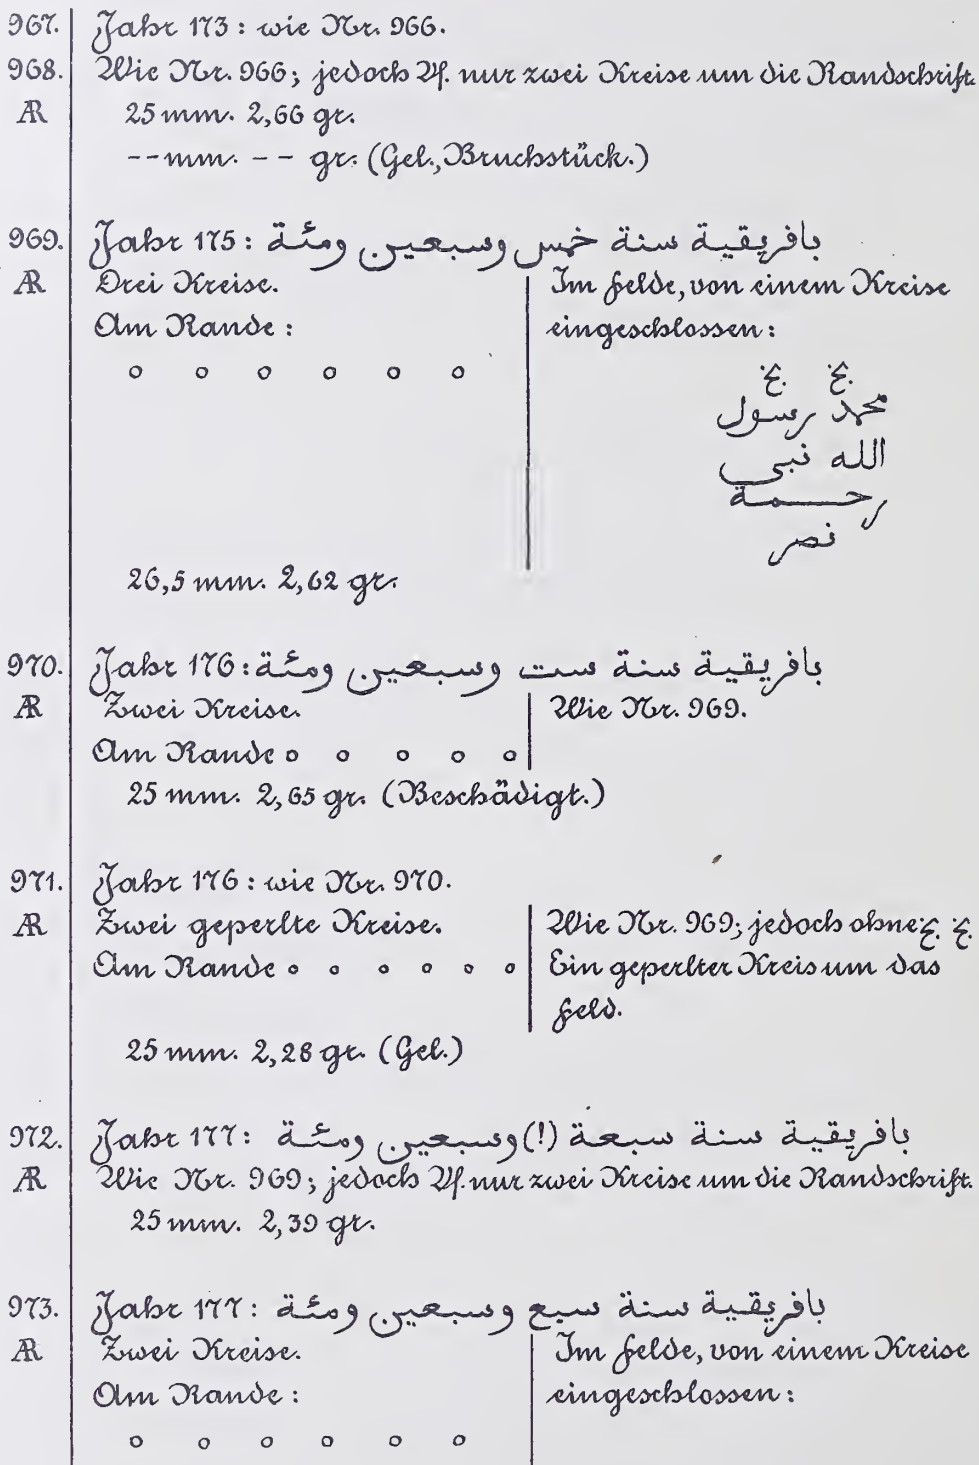 967. Jahr 173 : wie Nr. 966.
968. Wie Nr. 966; jedoch Vf. nur zwei Kreise um die Randschrift.
AR 25 mm. 2,66 gr.
-- mm. -- gr. (Gel., Bruchstück.)
969. Jahr 175 : بافريقية سنة خمس وسبعين ومئة
AR Drei Kreise.
Am Rande :
o o o o o o
26,5 mm. 2,62 gr.
Im Felde, von einem Kreise
eingeschlossen :
بخ بخ
محمد رسول
الله نبي
رحمة
نصر
970. Jahr 176 : بافريقية سنة ست وسبعين ومئة
AR Zwei Kreise.
Am Rande o o o o o
25 mm. 2,65 gr. (Beschädigt.)
Wie Nr. 969.
971. Jahr 176 : wie Nr. 970.
AR Zwei geperlte Kreise.
Am Rande o o o o o o
25 mm. 2,28 gr. (Gel.)
Wie Nr. 969; jedoch ohne بخ بخ.
Ein geperlter Kreis um das
Feld.
972. Jahr 177 : بافريقية سنة سبعة (!) وسبعين ومئة
AR Wie Nr. 969; jedoch Vf. nur zwei Kreise um die Randschrift.
25 mm. 2,39 gr.
973. Jahr 177 : بافريقية سنة سبع وسبعين ومئة
AR Zwei Kreise.
Am Rande :
o o o o o o
Im Felde, von einem Kreise
eingeschlossen :